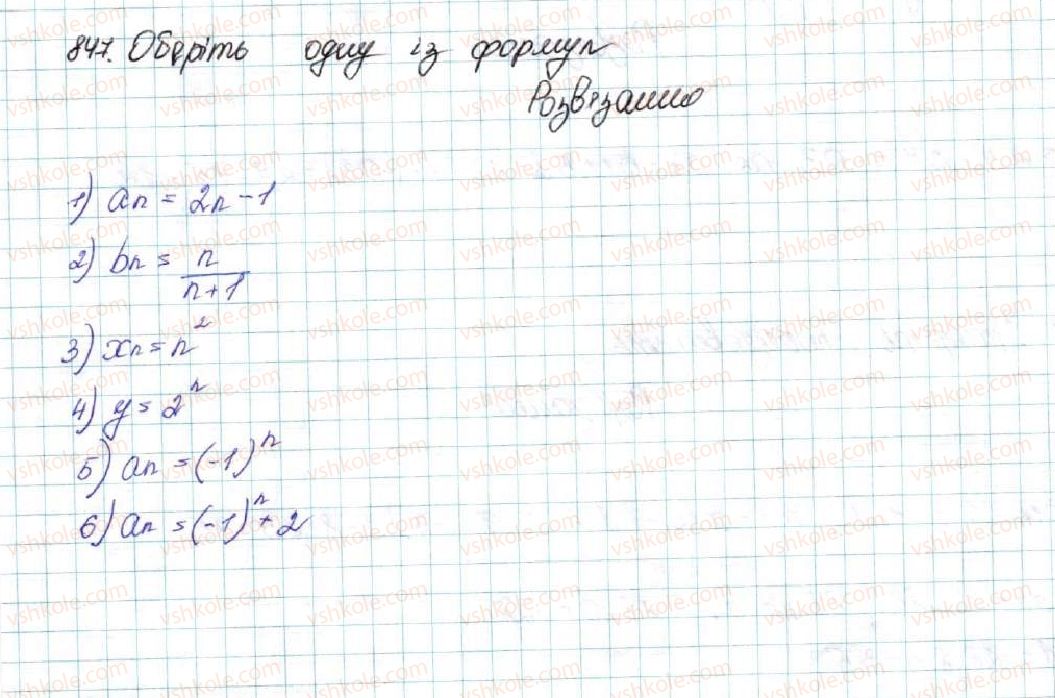 847. Оберіть одну із формул
Розв'язання
1) an = 2n - 1
2) bn = n/(n+1)
3) xn = n²
4) y = 2ⁿ
5) an = (-1)ⁿ
6) an = (-1)ⁿ + 2